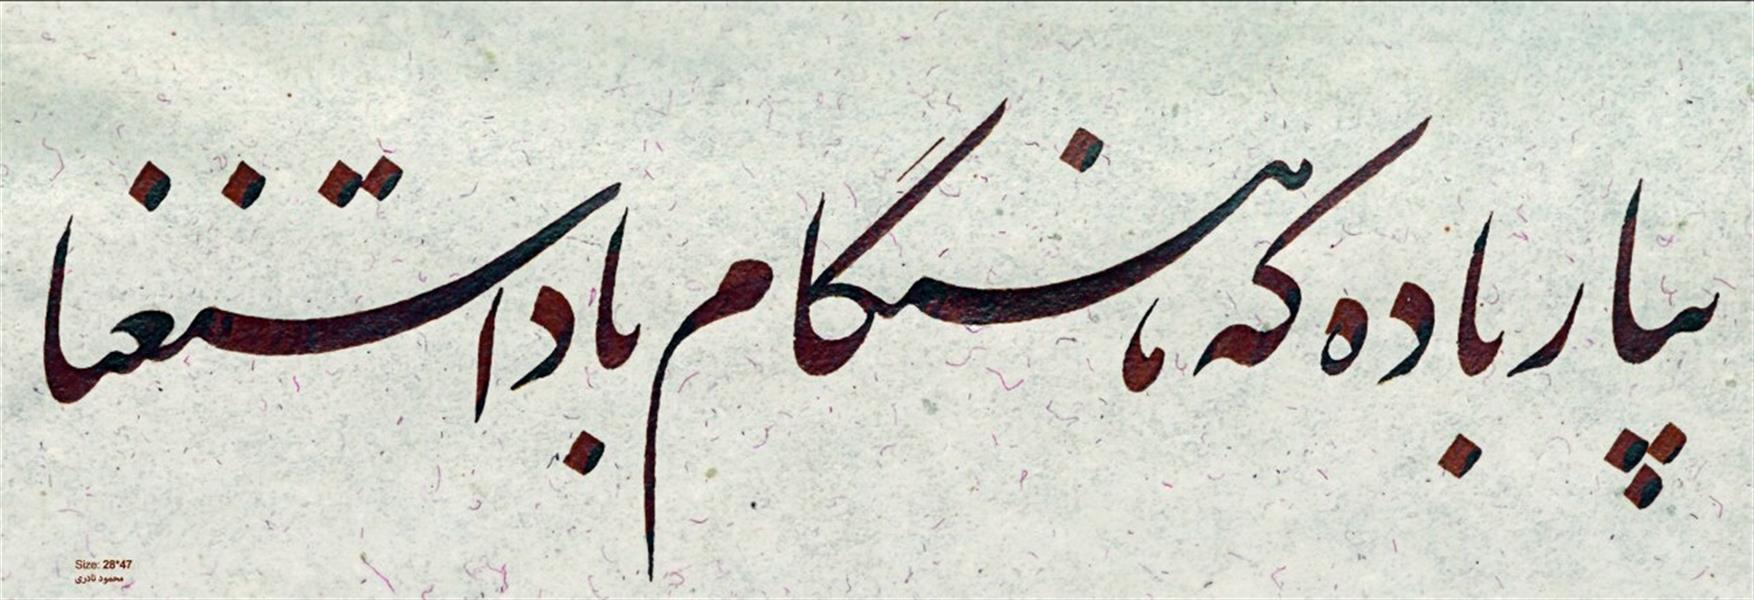 بیار باده که هنگام باد استغنا
Size: 28*47
محمود نادری